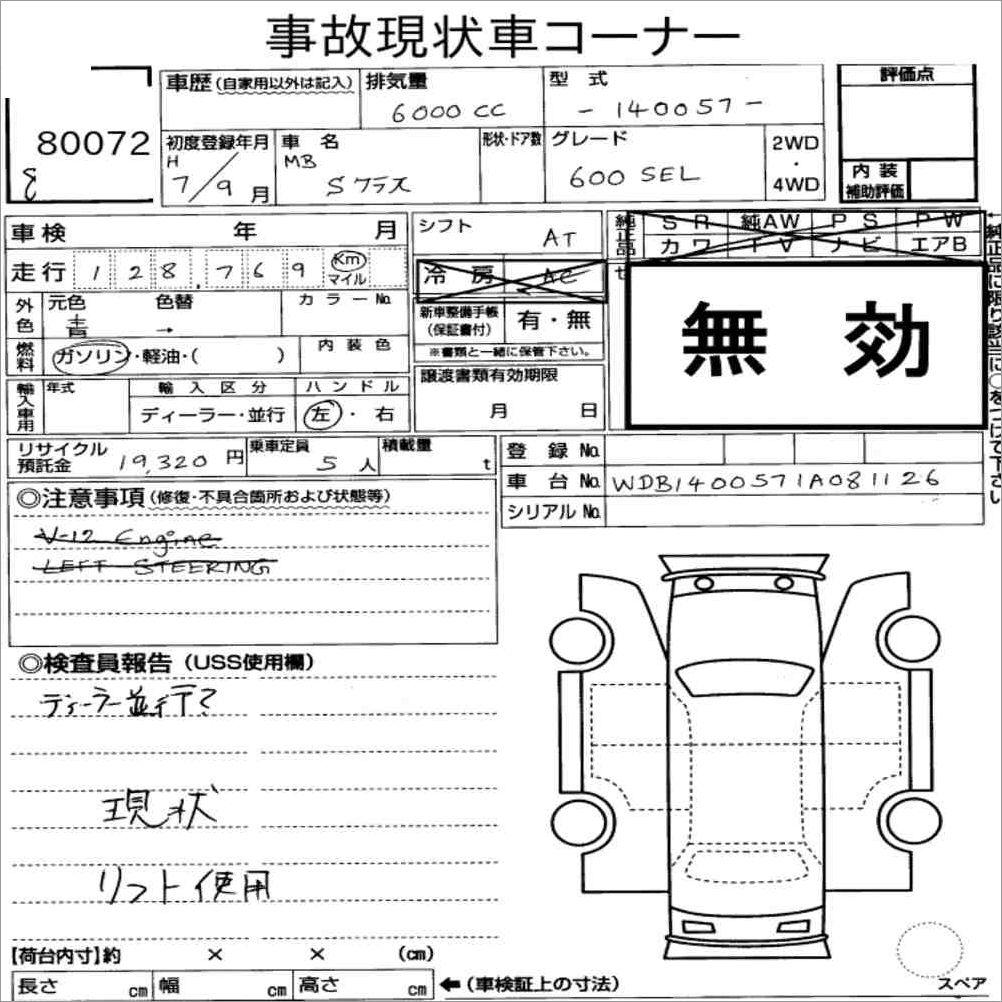 事故現状車コーナー
80072
車歴(自家用以外は記入)
排気量
6000 CC
型 式
-140057-
評価点
初度登録年月
H
7/9月
車 名
MB
Sクラス
形状・ドア数
グレード
600 SEL
2WD
・
4WD
内装
補助評価
車検 年 月
走行 128,769 Km マイル
外色
元色 色替
青 →
カラーNo.
燃料
ガソリン・軽油・( )
内装色
輸入車用
年式
輸入区分
ディーラー・並行
ハンドル
左・右
シフト
AT
冷房 AC
新車整備手帳
(保証書付)
有・無
※書類と一緒に保管下さい。
譲渡書類有効期限
月 日
純正品
SR 純AW PS PW
カワ TV ナビ エアB
無 効
純正品に限り該当に○をつけて下さい
リサイクル
預託金
19,320 円
乗車定員
5 人
積載量
t
登録No.
車台No. WDB1400571A081126
シリアルNo.
◎注意事項(修復・不具合箇所および状態等)
V-12 Engine
LEFT STEERING
◎検査員報告(USS使用欄)
ディーラー並行?
現状
リフト使用
【荷台内寸】約 × × (cm)
長さ cm 幅 cm 高さ cm ←(車検証上の寸法)
スペア